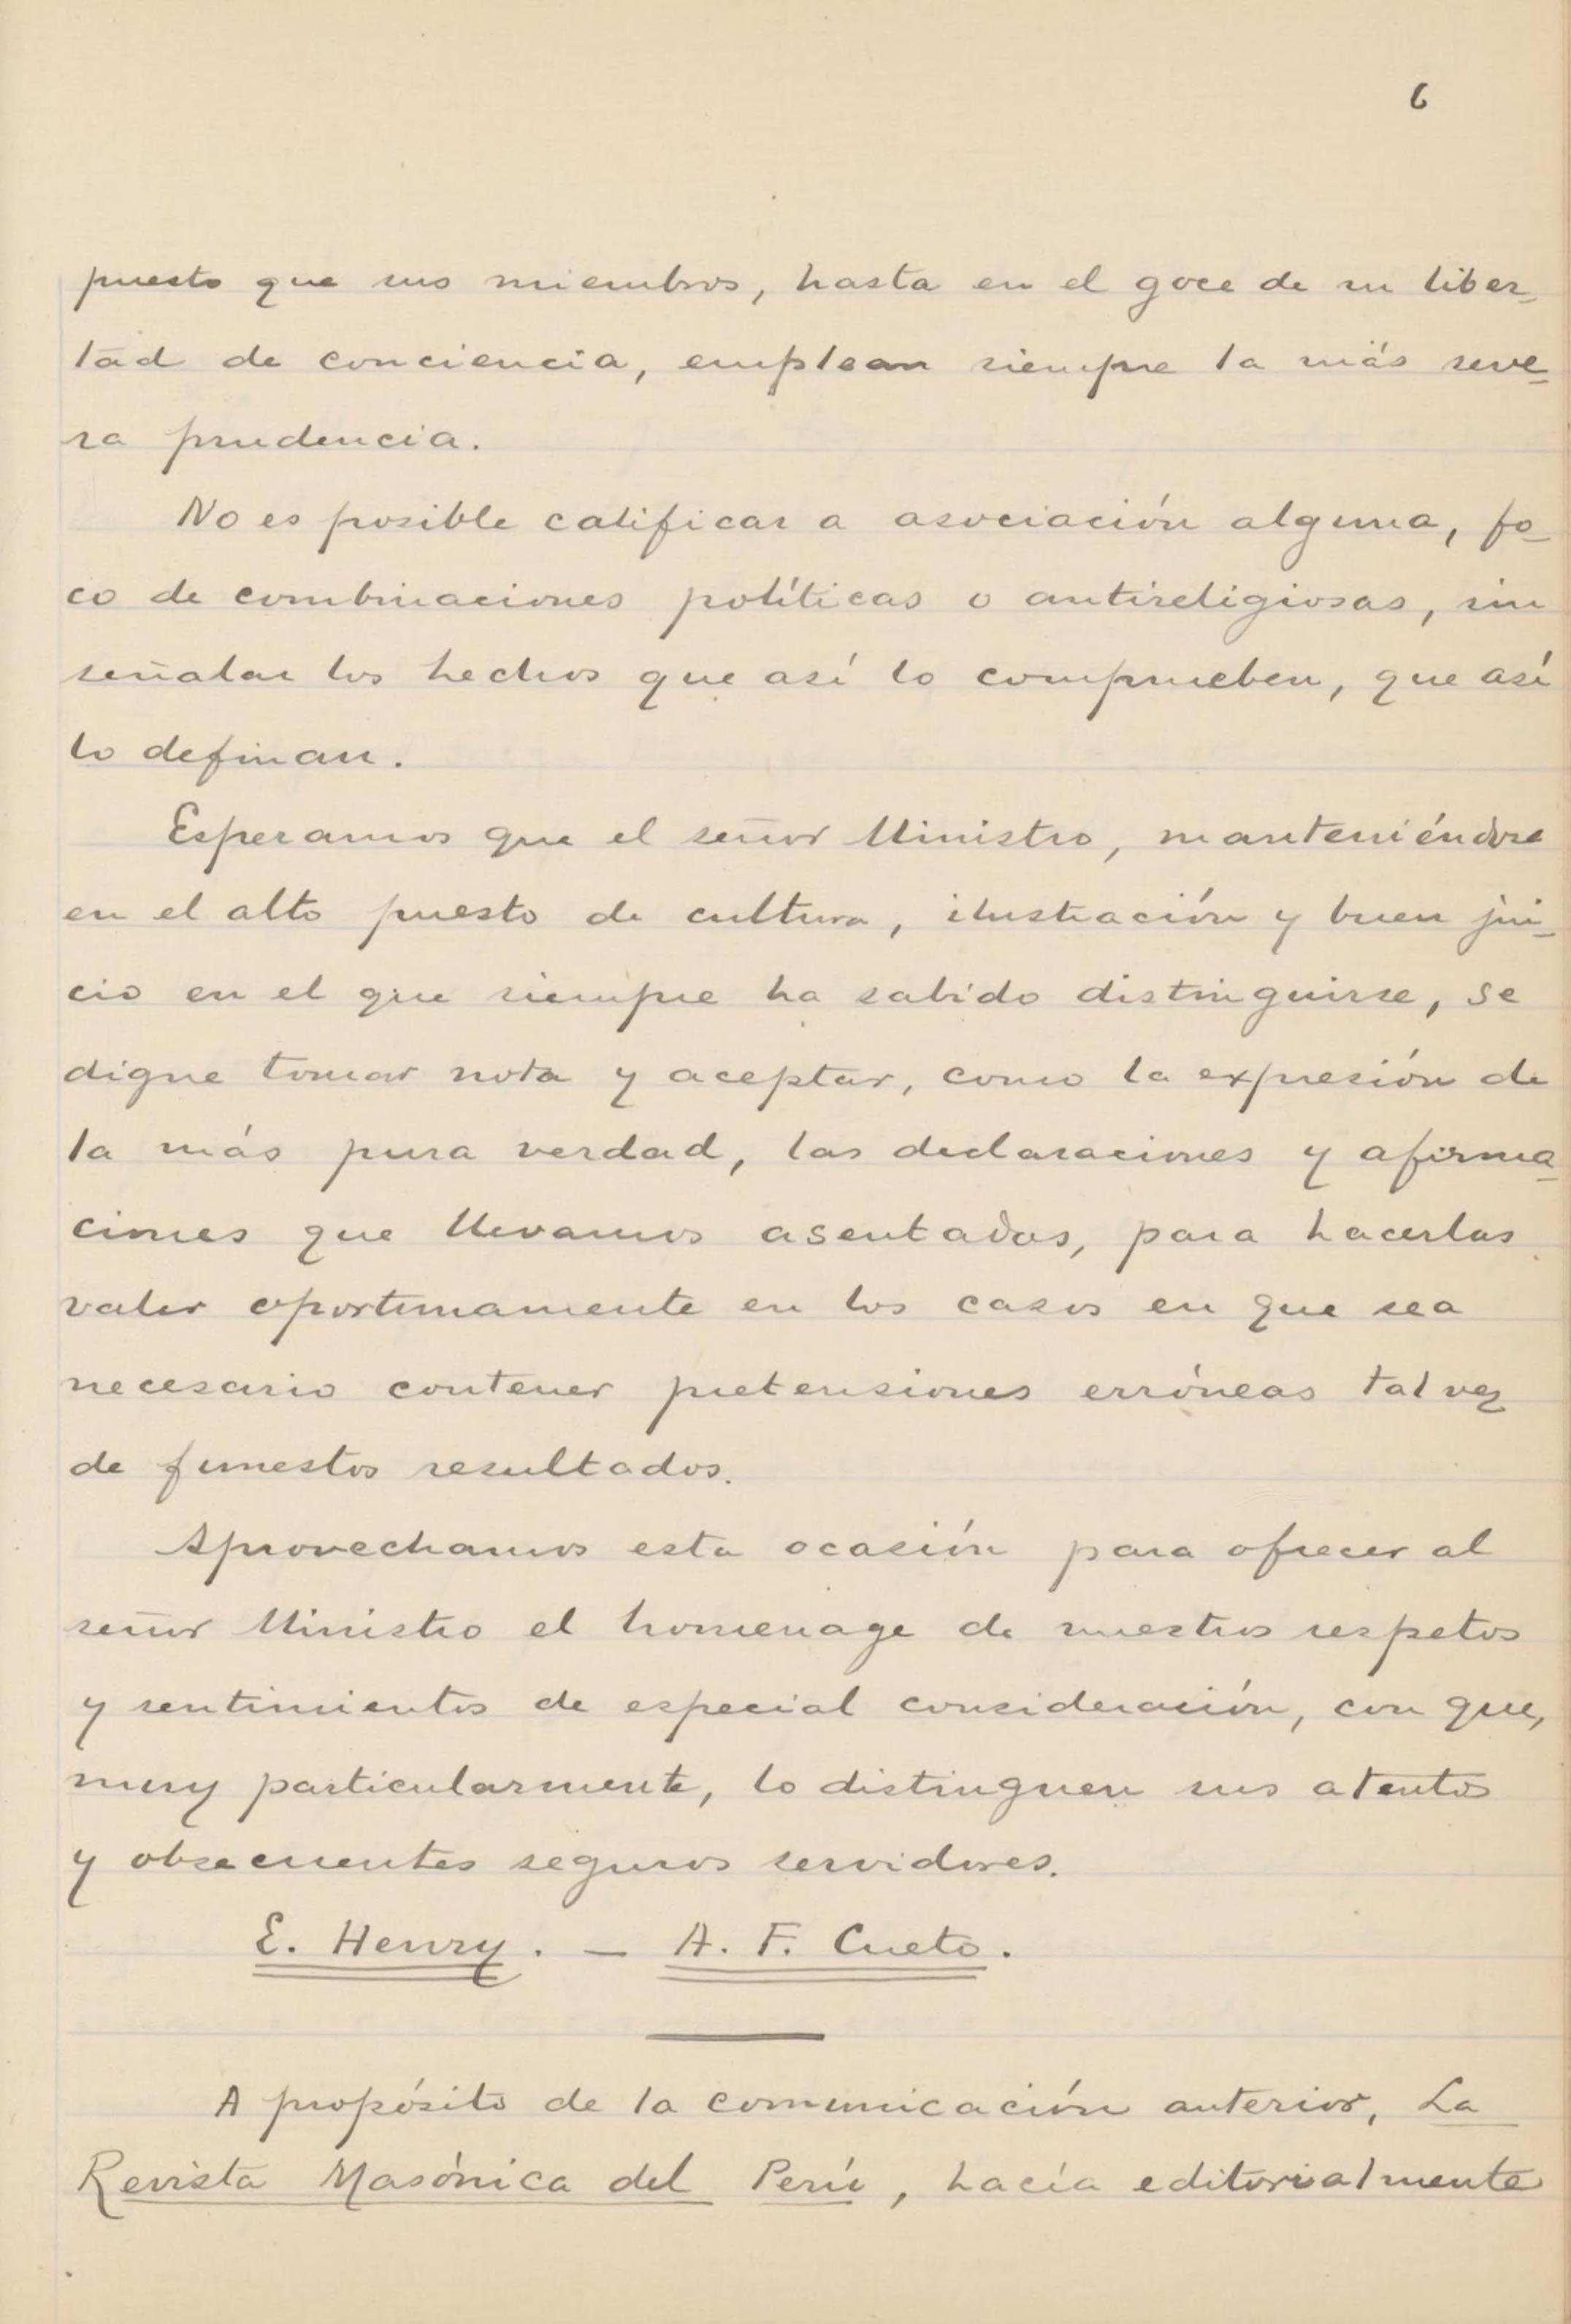 6
puesto que sus miembros, hasta en el goce de su liber-
tad de conciencia, emplean siempre la más seve-
ra prudencia.
No es posible calificar a asociación alguna, fo-
co de combinaciones políticas o antireligiosas, sin
señalar los hechos que así lo comprueben, que así
lo definan.
Esperamos que el señor Ministro, manteniéndose
en el alto puesto de cultura, ilustración y buen jui-
cio en el que siempre ha sabido distinguirse, se
digne tomar nota y aceptar, como la expresión de
la más pura verdad, las declaraciones y afirma-
ciones que llevamos asentadas, para hacerlas
valer oportunamente en los casos en que sea
necesario contener pretensiones erróneas tal vez
de funestos resultados.
Aprovechamos esta ocasión para ofrecer al
señor Ministro el homenage de nuestros respetos
y sentimientos de especial consideración, con que,
muy particularmente, lo distinguen sus atentos
y obsecuentes seguros servidores.
E. Henry. — A. F. Cueto.
A propósito de la comunicación anterior, La
Revista Masónica del Perú, hacía editorialmente